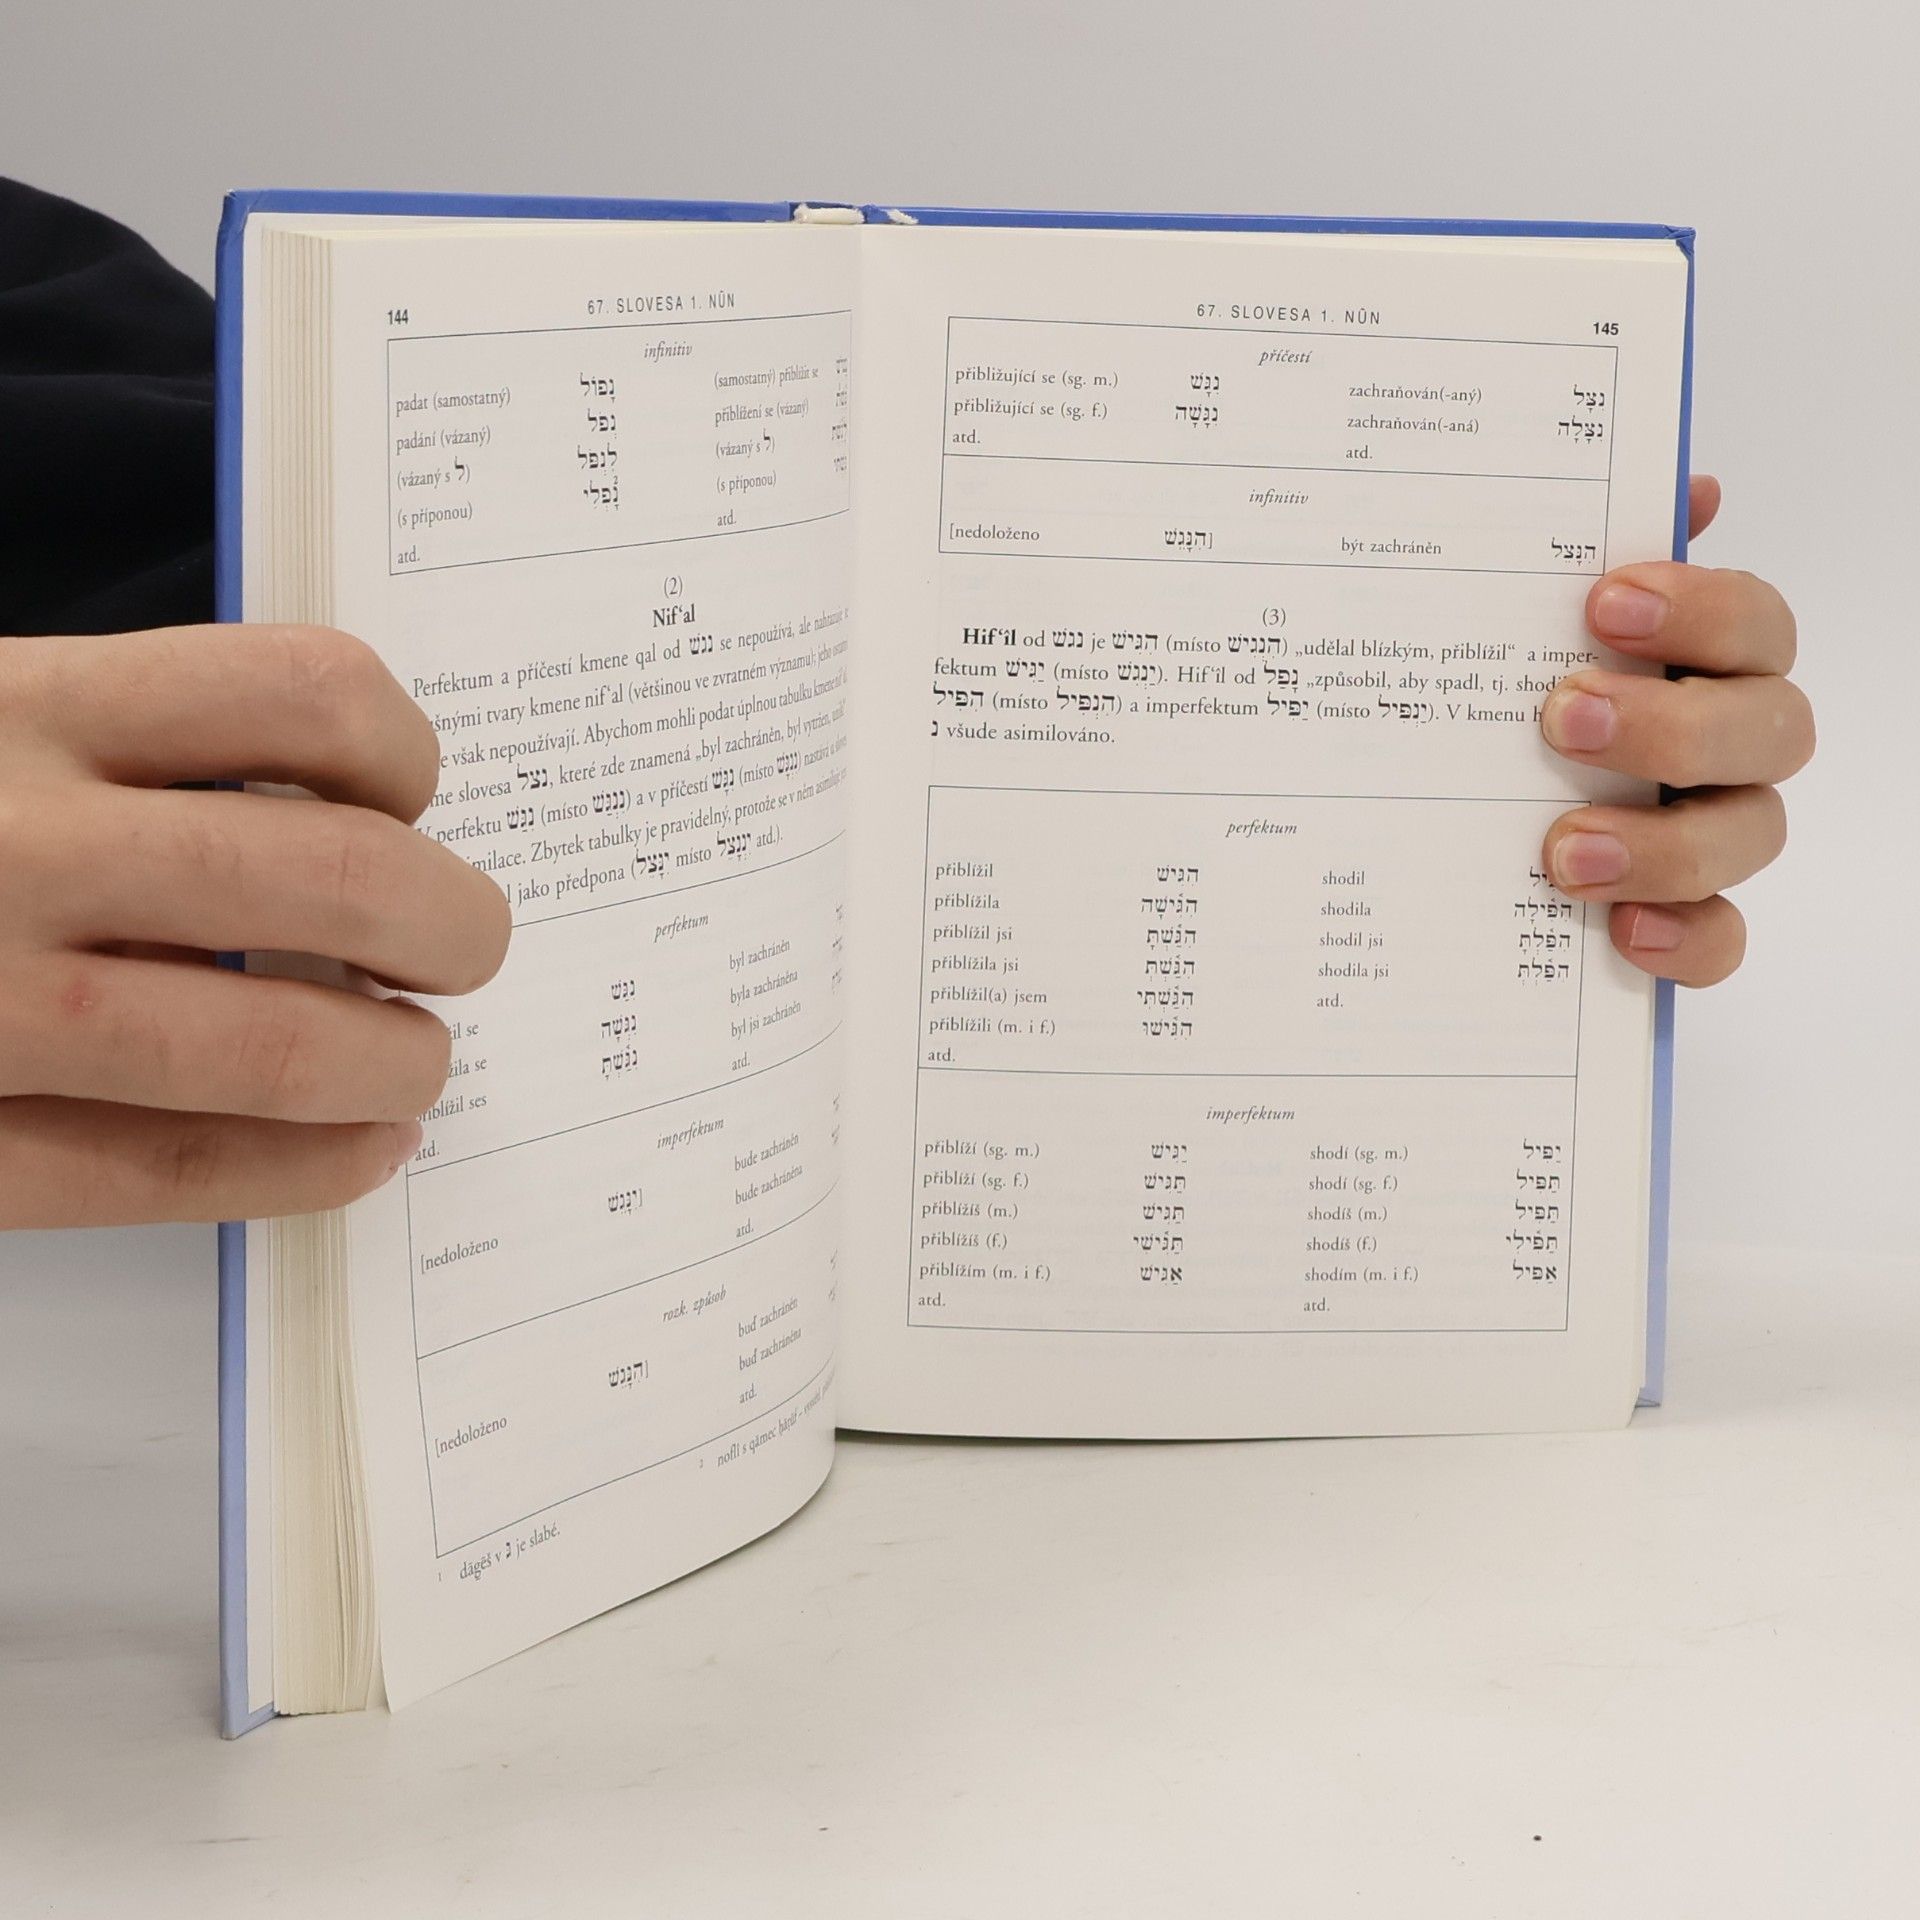 144
67. SLOVESA 1. NŪN
infinitiv
padat (samostatný) נָפוֹל (samostatný) přiblížit se
padání (vázaný) נְפֹל přiblížení se (vázaný)
(vázaný s לְ) לִנְפֹּל (vázaný s לְ)
(s příponou) נָפְלִי² (s příponou)
atd. atd.
(2)
Nif‘al
Perfektum a příčestí kmene qal od נגשׁ se nepoužívá, ale nahrazuje se
šnými tvary kmene nif‘al (většinou ve zvratném významu); jeho ostatní
však nepoužívají. Abychom mohli podat úplnou tabulku kmene nif‘al
me slovesa נצל, které zde znamená „byl zachráněn, byl vytržen, unikl“
V perfektu נִגַּשׁ (místo נִנְגַּשׁ) a v příčestí נִגָּשׁ (místo נִנְגָּשׁ) nastává
milace. Zbytek tabulky je pravidelný, protože se v něm asimiluje
jako předpona (יִנָּצֵל místo יִנְנָצֵל atd.).
perfektum
il se נִגַּשׁ byl zachráněn
žila se נִגְּשָׁה byla zachráněna
iblížil ses נִגַּשְׁתָּ byl jsi zachráněn
atd. atd.
imperfektum
[nedoloženo יִנָּגֵשׁ] bude zachráněn
bude zachráněna
atd.
rozk. způsob
[nedoloženo הִנָּגֵשׁ] buď zachráněn
buď zachráněna
atd.
1 dāgēš v נּ je slabé.
2 noflî s qāmec ḥāṭûf –
67. SLOVESA 1. NŪN
145
příčestí
přibližující se (sg. m.) נִגָּשׁ zachraňován(-aný) נִצָּל
přibližující se (sg. f.) נִגָּשָׁה zachraňován(-aná) נִצָּלָה
atd. atd.
infinitiv
[nedoloženo הִנָּגֵשׁ] být zachráněn הִנָּצֵל
(3)
Hif‘îl od נגשׁ je הִגִּישׁ (místo הִנְגִּישׁ) „udělal blízkým, přiblížil“ a imper-
fektum יַגִּישׁ (místo יַנְגִּישׁ). Hif‘îl od נָפַל „způsobil, aby spadl, tj. shod
הִפִּיל (místo הִנְפִּיל) a imperfektum יַפִּיל (místo יַנְפִּיל). V kmenu h
נ všude asimilováno.
perfektum
přiblížil הִגִּישׁ shodil
přiblížila הִגִּישָׁה shodila הִפִּילָה
přiblížil jsi הִגַּשְׁתָּ shodil jsi הִפַּלְתָּ
přiblížila jsi הִגַּשְׁתְּ shodila jsi הִפַּלְתְּ
přiblížil(a) jsem הִגַּשְׁתִּי atd.
přiblížili (m. i f.) הִגִּישׁוּ
atd.
imperfektum
přiblíží (sg. m.) יַגִּישׁ shodí (sg. m.) יַפִּיל
přiblíží (sg. f.) תַּגִּישׁ shodí (sg. f.) תַּפִּיל
přiblížíš (m.) תַּגִּישׁ shodíš (m.) תַּפִּיל
přiblížíš (f.) תַּגִּישִׁי shodíš (f.) תַּפִּילִי
přiblížím (m. i f.) אַגִּישׁ shodím (m. i f.) אַפִּיל
atd. atd.